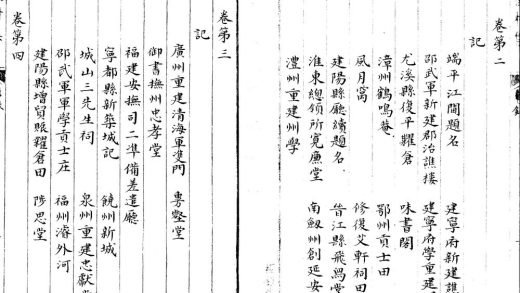 卷第二
記
端平江閫題名 建寧府新建譙
邵武軍新建郡治譙樓 建寧府學重建
尤溪縣復平糶倉 味書閣
漳州鶴鳴菴 鄂州貢士田
風月窩 修復艾軒祠田
建陽縣廳續題名 晉江縣飛鳧堂
淮東總領所寬廉堂 南劍州創延安
澧州重建州學
卷第三
記
廣州重建清海軍雙門 專壑堂
御書撫州忠孝堂
福建安撫司二準備差遣廳
寧都縣新築城記 饒州新城
城山三先生祠 泉州重建忠獻
邵武軍軍學貢士庄 福州濬外河
建陽縣增買賑糶倉田 陟思堂
卷第四